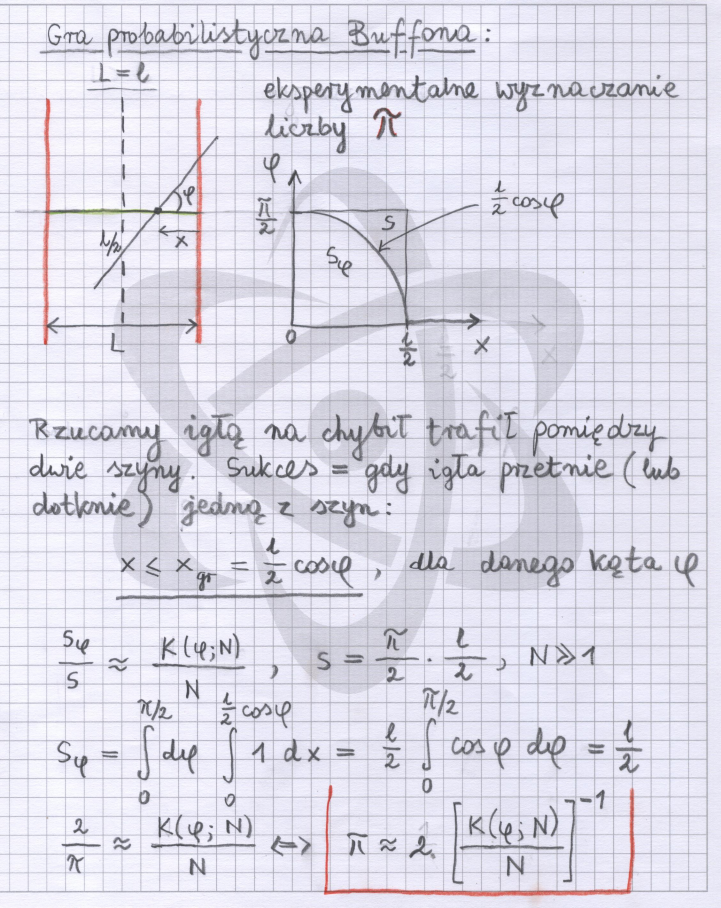 Gra probabilistyczna Buffona:
L = l
eksperymentalne wyznaczanie
liczby π
φ
π/2
l/2 cosφ
S
Sφ
φ
l/2
x
L
0
l/2
x
Rzucamy igłą na chybił trafił pomiędzy
dwie szyny. Sukces = gdy igła przetnie (lub
dotknie) jedną z szyn:
x ≤ x_gr = l/2 cosφ, dla danego kąta φ
Sφ/S ≈ K(φ;N)/N, S = π/2 · l/2, N≫1
Sφ = ∫_0^{π/2} dφ ∫_0^{l/2 cosφ} 1 dx = l/2 ∫_0^{π/2} cosφ dφ = l/2
2/π ≈ K(φ;N)/N ⇔ π ≈ 2 [K(φ;N)/N]^{-1}